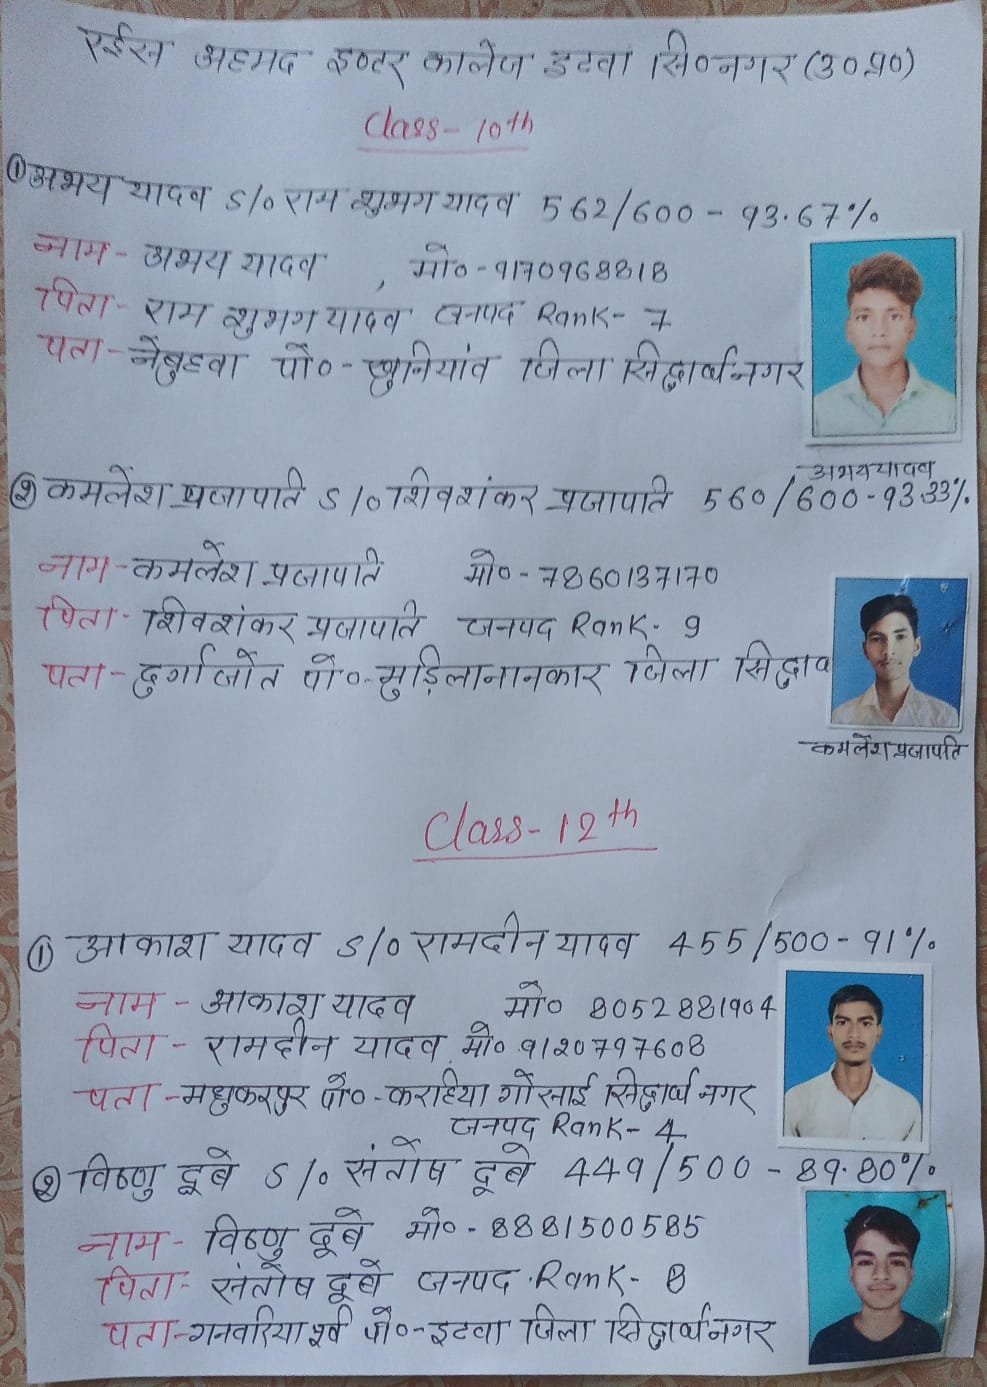 रईस अहमद इण्टर कालेज इटवा सि०नगर (उ०प्र०)
Class- 10th
① अभय यादव S/o राम शुभग यादव 562/600 - 93.67%
नाम - अभय यादव , मो० - 9170968818
पिता - राम शुभग यादव जनपद Rank- 7
पता - नेबुहवा पो० - खुनियांव जिला सिद्धार्थनगर
अभय यादव
② कमलेश प्रजापति S/o शिवशंकर प्रजापति 560/600 - 93.33%
नाम - कमलेश प्रजापति मो० - 7860137170
पिता - शिवशंकर प्रजापति जनपद Rank- 9
पता - दुर्गाजोत पो० - मुड़िलानानकार जिला
कमलेश प्रजापति
Class- 12th
① आकाश यादव S/o रामदीन यादव 455/500 - 91%
नाम - आकाश यादव मो० 8052881904
पिता - रामदीन यादव मो० 9120797608
पता - मधुकरपुर पो० - करहिया गोसाई सिद्धार्थ नगर
जनपद Rank- 4
② विष्णु दूबे S/o संतोष दूबे 449/500 - 89.80%
नाम - विष्णु दूबे मो० - 8881500585
पिता - संतोष दूबे जनपद Rank- 8
पता - गनवरिया पो० - इटवा जिला सिद्धार्थनगर